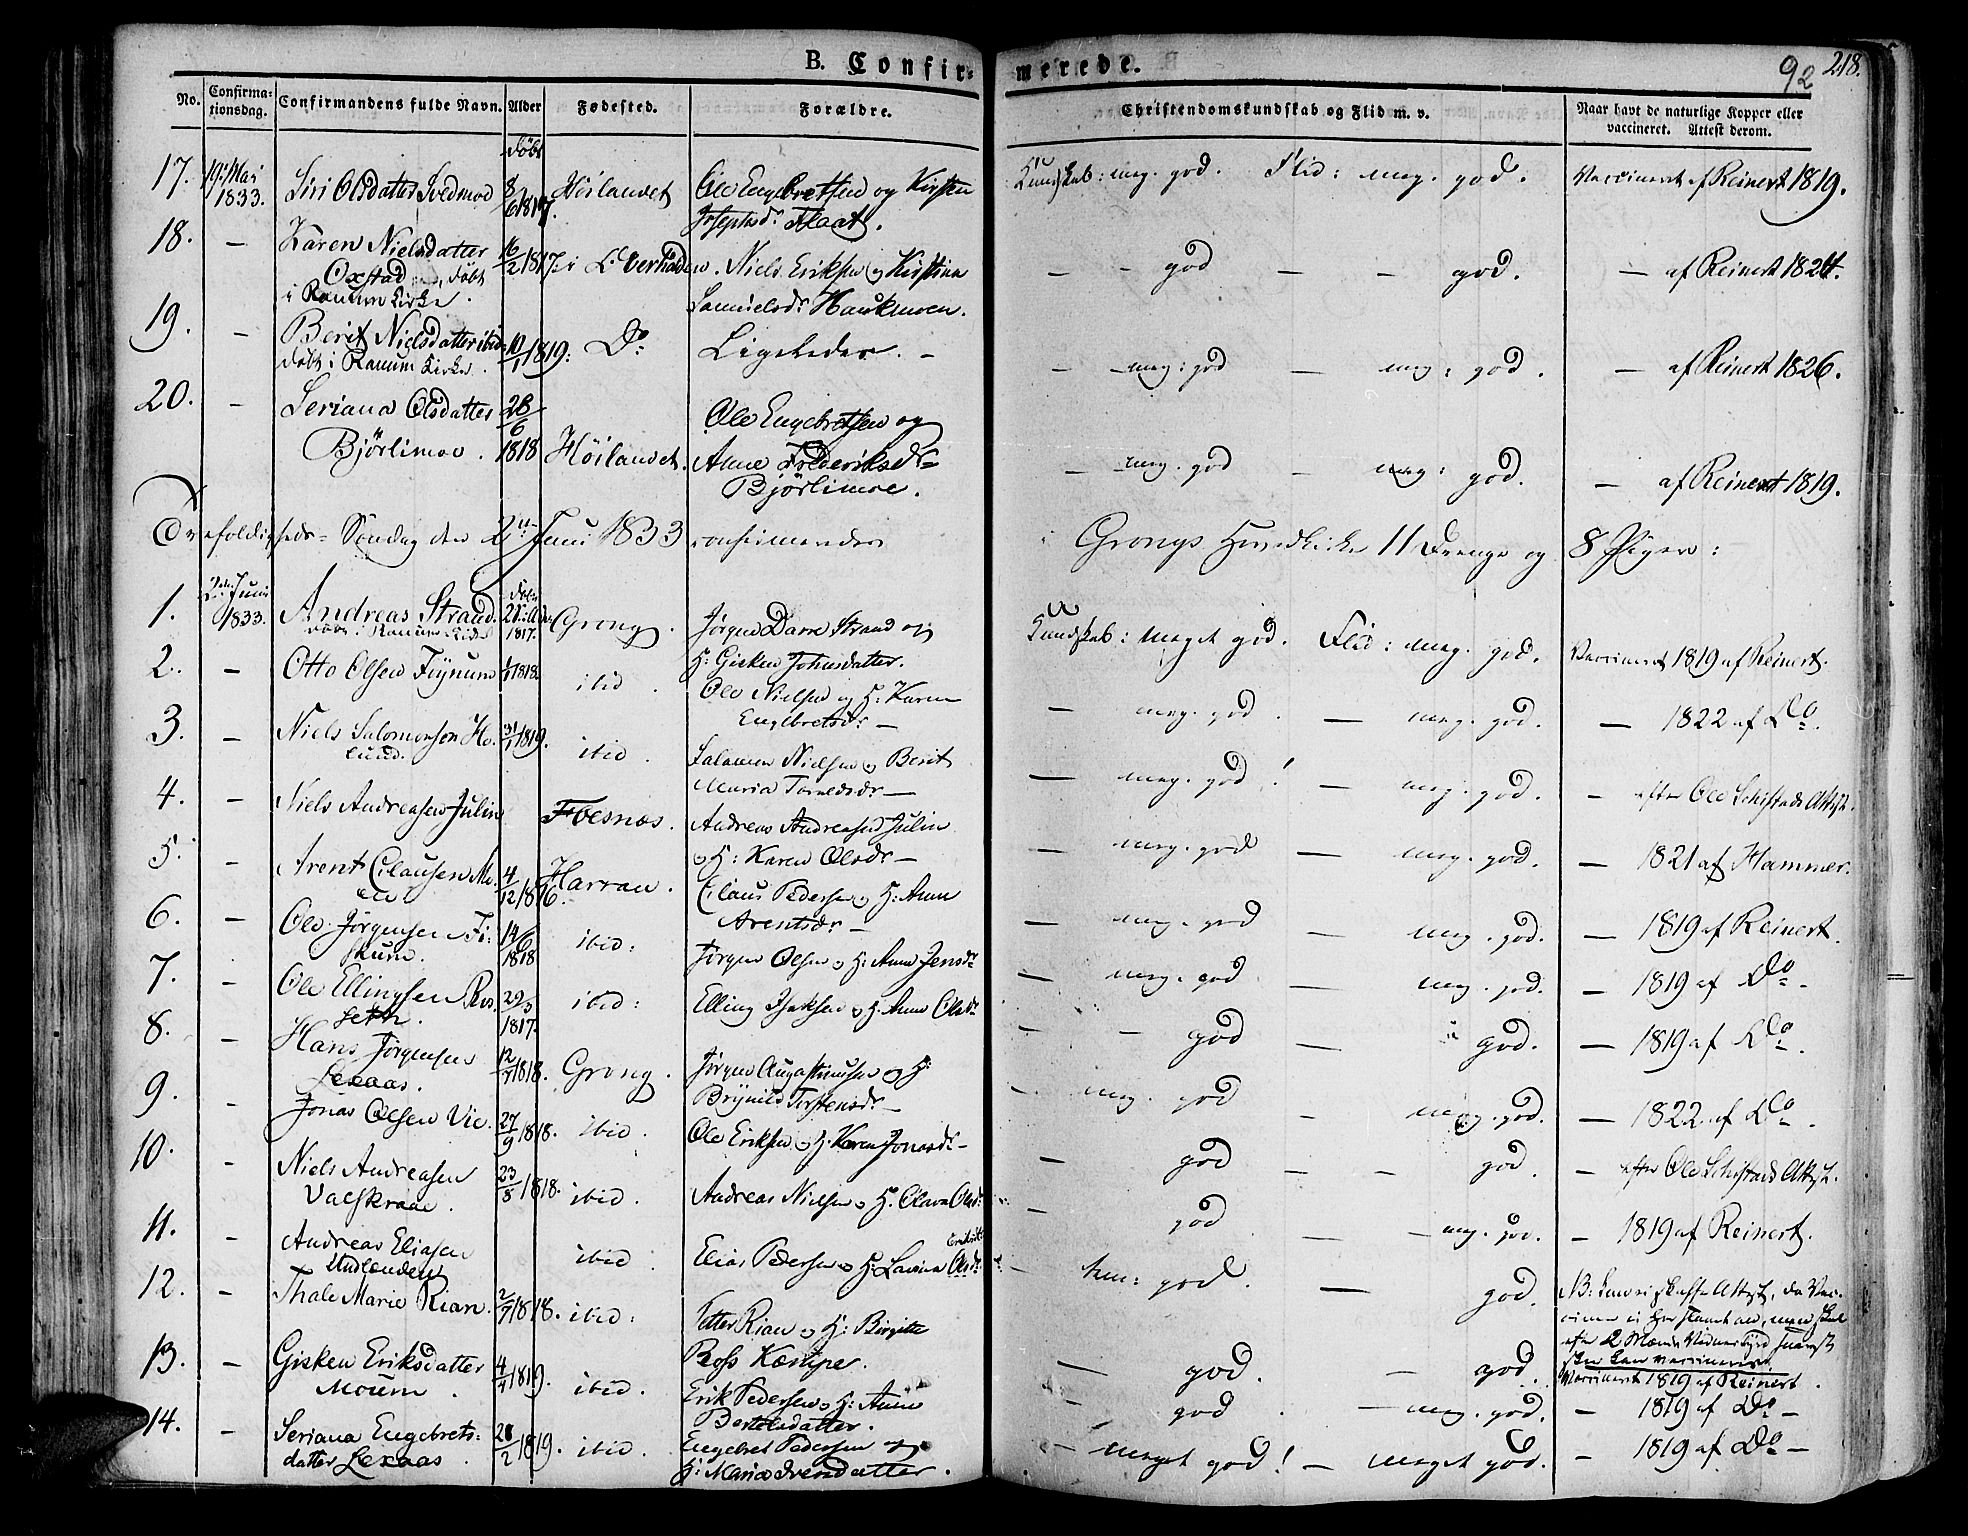 B. Confirmerede.
92 218.
No. Confirmationsdag. Confirmandens fulde Navn. Alder Fødested. Forældre. Christendomskundskab og Flid m. v. Naar havt de naturlige Kopper eller vaccineret. Attest derom.
døbt
17. 19. Mai 1833. Siri Olsdatter Svedmoe 8/6 1817. Höilandet Ole Engebretsen og Kirsten Josephsdr Flaat. Kundskab: meg. god. Flid: meg. god. Vaccineret af Reinert 1819.
18. — Karen Nielsdatter Oxstad, døbt i Ranum Kirke. 16/2 1817 i Overhalden. Niels Eriksen og Kirstina Samuelsdr Haukmoen. — - god — - god. — af Reinert 1824.
19. — Berit Nielsdatter ibid døbt i Ranum Kirke. 10/1 1819: Do Ligeledes. — - meg: god — meg: god. — af Reinert 1826.
20. - Seriana Olsdatter Björlimoe. 28/6 1818 Höilandet. Ole Engebretsen og Anne Frederiksdr Björlimoe. — meg. god — meg: god. — af Reinert 1819.
Trefoldigheds-Søndag den 2den Juni 1833 confirmeredes i Grongs Hovedkirke 11 Drenge og 8 Piger:
1. Juni 1833. Andreas Strand. døbt i Ranum Kirke døbt 1817. Grong. Jørgen Darre Strand og H: Gisken Johnsdatter. Kundskab: meget god. Flid: meg. god. Vaccineret 1819 af Reinert.
2. — Otto Olsen Fiynum 1/1 1818. ibid. Ole Nielsen og H: Karen Engebretsdr — — meg. god. — meg. god. — 1822 af Do.
3. — Niels Salomonsen Ho-lund. 31/1 1819. ibid. Salamon Nielsen og Berit Maria Tomesdr — — meg. god! — meg. god. — efter Ole Schistads Attest.
4. — Niels Andreasen Julin Foesnæs. Andreas Andreasen Julin og H: Karen Olsdr — — meg. god — meg. god. — 1821 af Hammer.
5. — Arent Clausen Mo-en 4/12 1816. Harran. Claus Pedersen og H: Anne Arentsdr — — meg. god — meg. god. — 1819 af Reinert.
6. — Ole Jørgensen Fi-skum. 14/6 1818 ibid: Jørgen Olsen og H: Anne Jensdr — meg. god — meg. god. — 1819 af Do.
7. - Ole Ellingsen Ros-seth. 29/3 1817. ibid: Elling Isaksen og H: Anne Olsdr — - god — god. — 1819 af Do.
8. — Hans Jørgensen Lexaas. 12/7 1818. Grong. Jørgen Augustinusen og H: Brynild Torstensdr — — meg. god — meg. god. — 1822 af Do.
9. - Jonas Olsen Vie. 27/9 1818. ibid. Ole Eriksen og H: Karen Jonasdr — — god — — god. — efter Ole Schistads Attest.
10. - Niels Andreasen Valskraae. 23/3 1818. ibid. Andreas Nielsen og H: Olava Olsdr — god — meg. god. — 1819 af Reinert.
11. - Andreas Eliasen ibid: Elias Pedersen og H: Lavina Olsdr — tem: god. — god. NB: Kan ei skaffe Attest, da Vaccinen ei har slaaet an, men skal efter 2 Mænds Vidnesbyrd
12. — Thale Marie Rian. 2/7 1818. ibid: Petter Rian og H: Birgitte Ross Kæmpe. — god. — god. Vaccineret 1819 af Reinert.
13. — Gisken Eriksdatter Moum. 4/4 1819. ibid. Erik Pedersen og H: Anne Bertelsdatter. — god. — meg. god. — 1819 af Do —
14. - Seriana Engebrets-datter Lexaas. 28/2 1819. ibid. Engebret Pedersen og H: Maria Ivensdatter. — meget god! — meget god. — 1819 af Do —